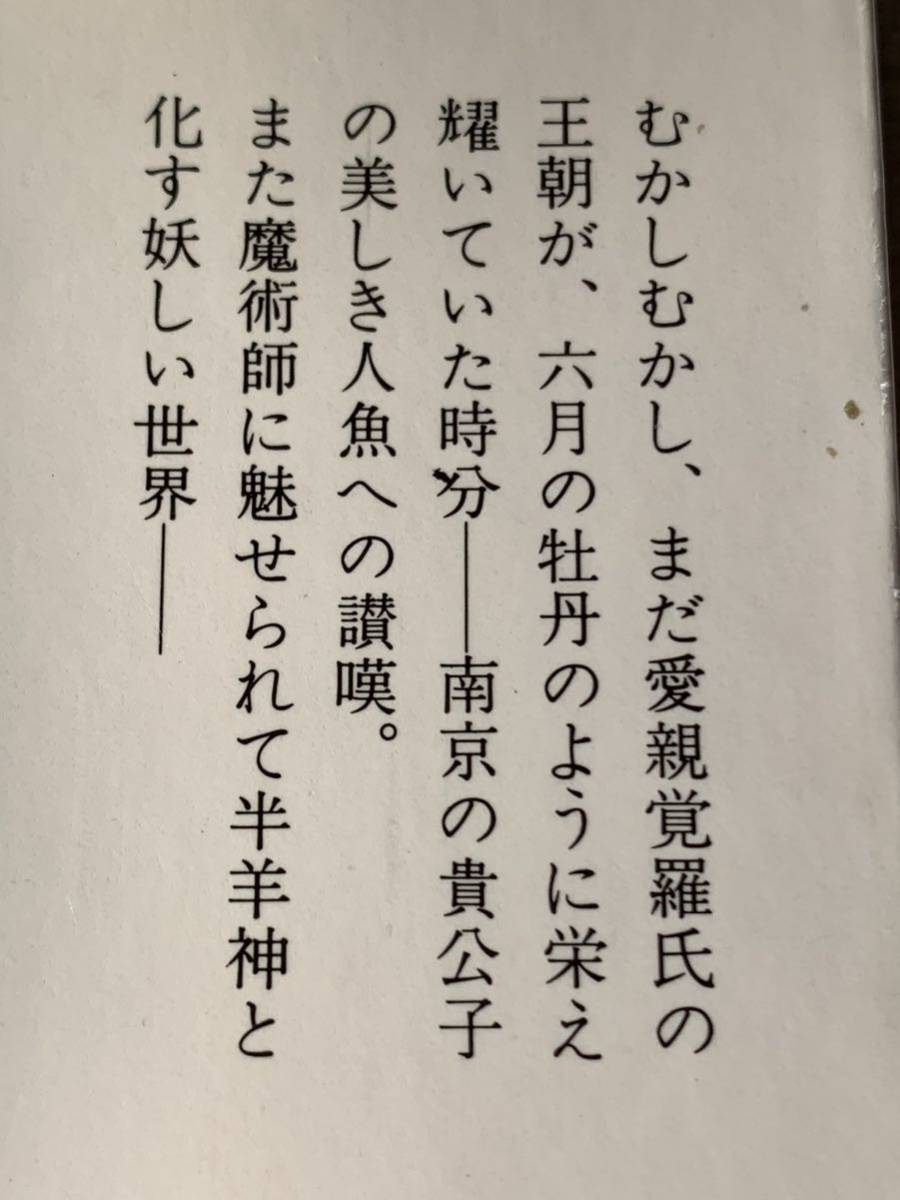 むかしむかし、まだ愛親覚羅氏の
王朝が、六月の牡丹のように栄え
耀いていた時分――南京の貴公子
の美しき人魚への讃嘆。
また魔術師に魅せられて半羊神と
化す妖しい世界――